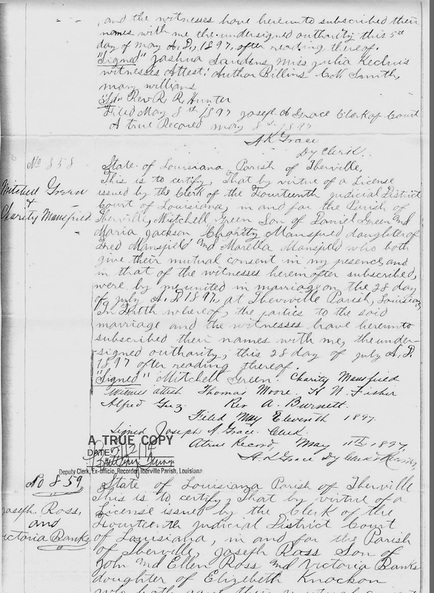 and the witnesses have hereunto subscribed their
names with me the undersigned authority this 5th
day of may A.D. 1897, after reading thereof.
"Signed" Joshua Sanders, Miss Julia
witnesses Attest: Author Billins Smith,
mary williams
Rev. R R Hunter
Filed May 8th 1897 Joseph A Grace Clerk of Court
A true Record may 8th 1897
A K Grace
Dy Clerk.
No 858
State of Louisiana Parish of Iberville,
This is to certify, That by virtue of a License
issued by the Clerk of the Fourteenth Judicial District
Mitchell Green
+
Charity Mansfield
Court of Louisiana, in and for the Parish of
Iberville, Mitchell Green Son of Daniel Green and
Maria Jackson Charity Mansfield daughter of
Fred Mansfield and Martha Mansfield who both
give their mutual consent in my presence and
in that of the witnesses hereinafter subscribed,
were by me united in marriage on the 28 day
of July A.D. 1897 at Iberville Parish, Louisiana
In Faith whereof, the parties to the said
marriage and the witnesses have hereunto
subscribed their names with me, the under-
signed authority, this 28 day of july A.D.
1897 after reading thereof.
"Signed" Mitchell Green. Charity Mansfield
witness attest Thomas Moore. H. W. Fisher
Alfred Rev A. Burnett.
Filed May Eleventh 1897
Signed Joseph A. Grace Clerk.
A true Record May 11th 1897
A. K Grace Dy Clerk
A TRUE COPY
DATE
Deputy Clerk, Ex-officio, Recorder, Iberville Parish, Louisiana
No 859
State of Louisiana Parish of Iberville
This is to certify, That by virtue of a
License issued by the Clerk of the
Joseph Ross,
and
Victoria Banks
Fourteenth Judicial District Court
of Louisiana, in and for the Parish
of Iberville, Joseph Ross Son of
John and Ellen Ross and Victoria Banks
daughter of Elizabeth Knockson